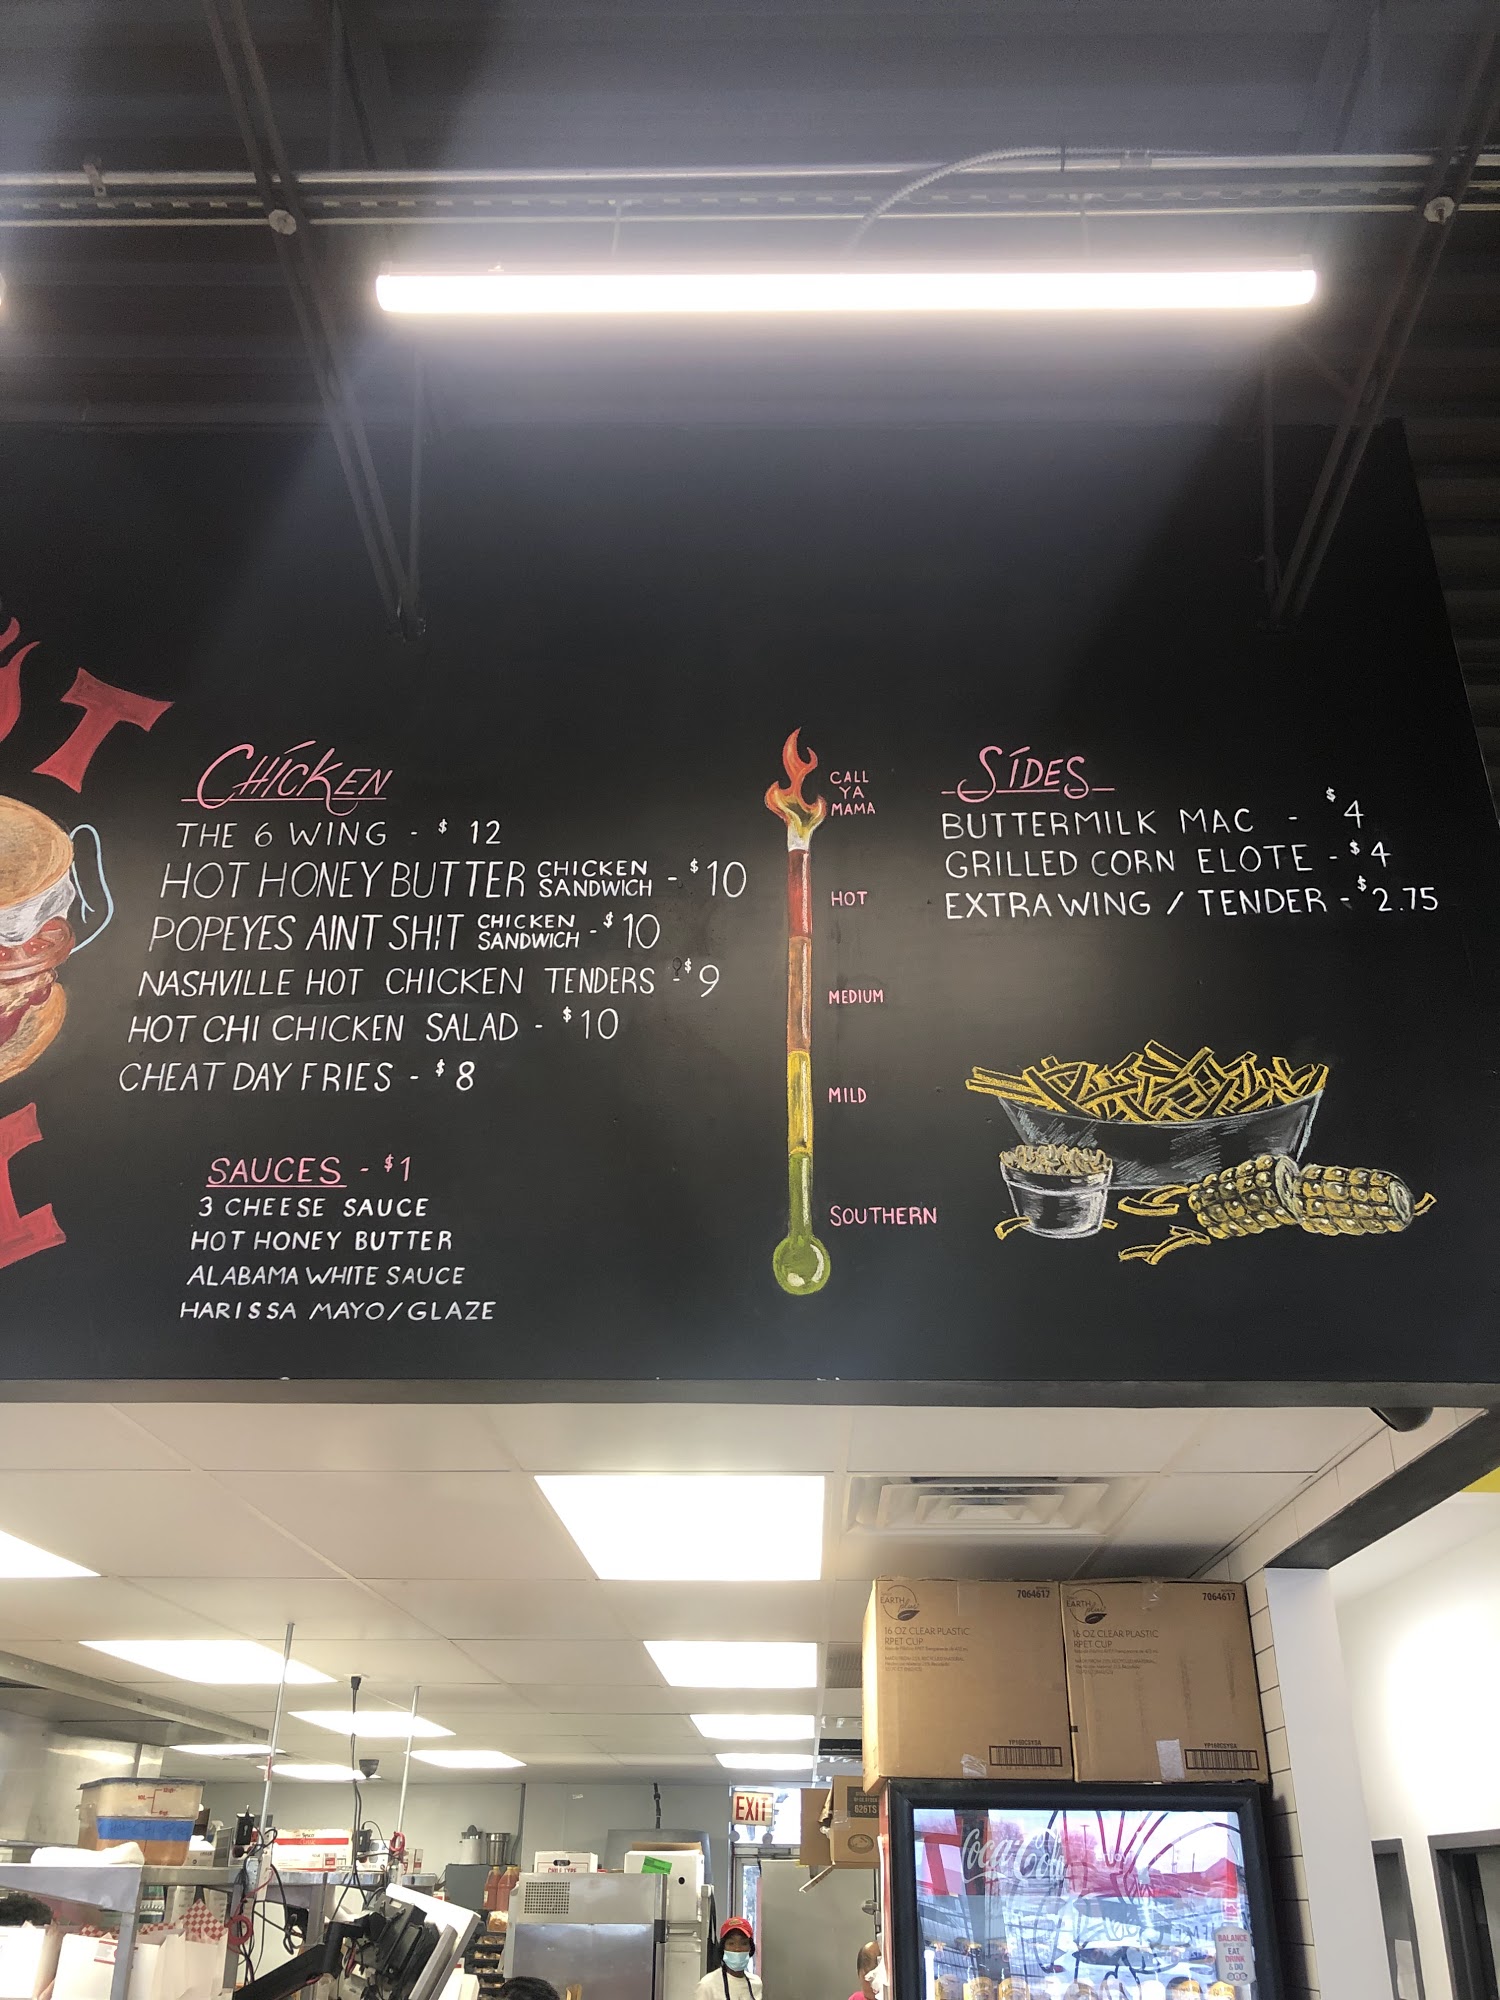 T
I
CHICKEN
THE 6 WING - $12
HOT HONEY BUTTER CHICKEN SANDWICH - $10
POPEYES AINT SH!T CHICKEN SANDWICH - $10
NASHVILLE HOT CHICKEN TENDERS - $9
HOT CHI CHICKEN SALAD - $10
CHEAT DAY FRIES - $8
SAUCES - $1
3 CHEESE SAUCE
HOT HONEY BUTTER
ALABAMA WHITE SAUCE
HARISSA MAYO/GLAZE
CALL
YA
MAMA
HOT
MEDIUM
MILD
SOUTHERN
SIDES
BUTTERMILK MAC - $4
GRILLED CORN ELOTE - $4
EXTRA WING / TENDER - $2.75
EARTH plus
7064617
16 OZ CLEAR PLASTIC
RPET CUP
YP160CSYSA
EARTH plus
7064617
16 OZ CLEAR PLASTIC
RPET CUP
YP160CSYSA
EXIT
626TS
Coca-Cola
BALANCE
EAT,
DRINK
& DO